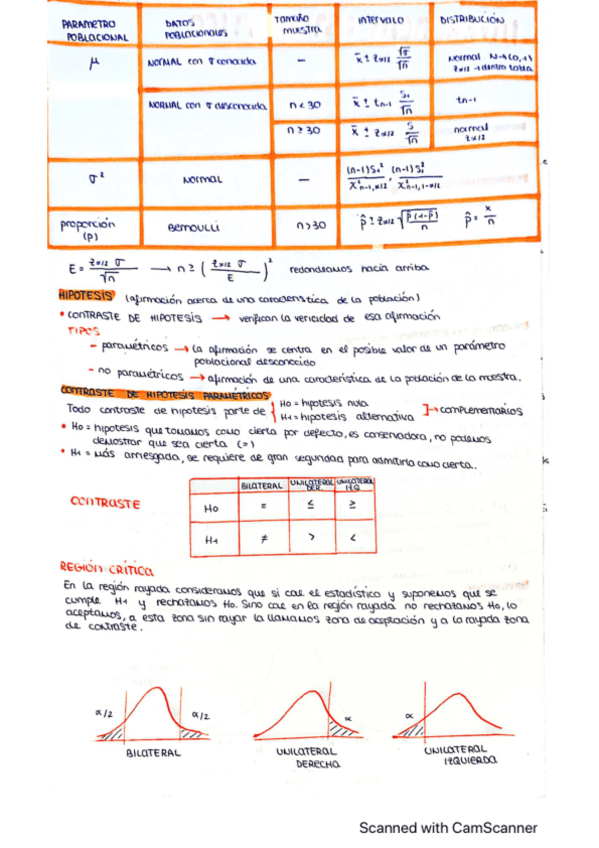 PARAMETRO POBLACIONAL | DATOS POBLACIONALES | Tamaño muestra | intervalo | DISTRIBUCIÓN
μ | NORMAL con σ conocida | — | x̄ ± zα/2 σ/√n | Normal N→(0,1) zα/2 → dentro tabla
NORMAL con σ desconocida | n < 30 | x̄ ± tn-1 S1/√n | tn-1
n ≥ 30 | x̄ ± zα/2 S/√n | normal zα/2
σ² | Normal | — | (n-1)S1²/χ²n-1,α/2 , (n-1)S1²/χ²n-1,1-α/2
proporción (p) | Bernoulli | n>30 | p̂ ± zα/2 √p̂(1-p̂)/n p̂ = x/n
E = zα/2 σ/√n → n ≥ (zα/2 σ/E)² redondeamos hacia arriba
HIPOTESIS (afirmación acerca de una característica de la población)
• CONTRASTE DE HIPOTESIS → verifican la vericidad de esa afirmación
TIPOS
- paramétricos → la afirmación se centra en el posible valor de un parámetro
poblacional desconocido
- no paramétricos → afirmación de una característica de la población de la muestra.
CONTRASTE DE HIPOTESIS PARAMÉTRICOS
Todo contraste de hipotesis parte de { H0 = hipotesis nula
H1 = hipotesis alternativa ] → complementarios
• H0 = hipotesis que tomamos como cierta por defecto, es conservadora, no podemos
demostrar que sea cierta (=)
• H1 = más arriesgada, se requiere de gran seguridad para admitirla como cierta.
CONTRASTE
BILATERAL | UNILATERAL DER. | UNILATERAL IZQ
H0 | = | ≤ | ≥
H1 | ≠ | > | <
REGIÓN CRÍTICA
En la región rayada consideramos que si cae el estadístico y suponemos que se
cumple H1 y rechazamos H0. Sino cae en la región rayada no rechazamos H0, lo
aceptamos, a esta zona sin rayar la llamamos zona de aceptación y a la rayada zona
de contraste.
α/2 α/2 α α
BILATERAL
UNILATERAL
DERECHA
UNILATERAL
IZQUIERDA
Scanned with CamScanner